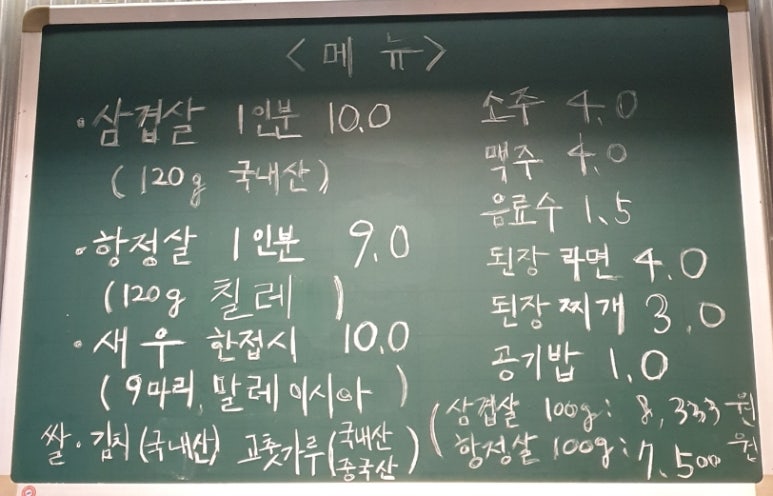 <메뉴>
· 삼겹살 1인분 10.0
(120g 국내산)
· 항정살 1인분 9.0
(120g 칠레)
· 새우 한접시 10.0
(9마리, 말레이시아)
쌀·김치(국내산) 고춧가루(국내산
중국산)
소주 4.0
맥주 4.0
음료수 1.5
된장라면 4.0
된장찌개 3.0
공기밥 1.0
(삼겹살 100g: 8,333원
항정살 100g: 7,500원